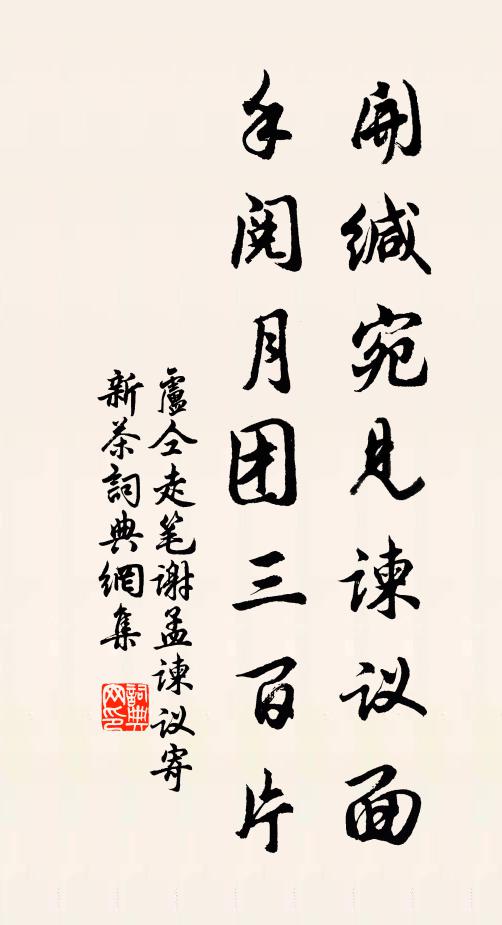 开缄宛见谏议面
手阅月团三百片
盧仝走笔谢孟谏议寄
新茶詞典網集
詞典网印